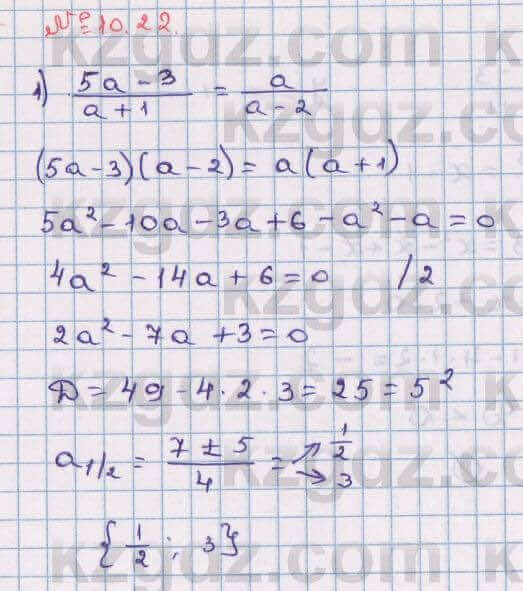 №10.22.
1) (5a-3)/(a+1) = a/(a-2)
(5a-3)(a-2) = a(a+1)
5a²-10a-3a+6-a²-a=0
4a²-14a+6=0 /2
2a²-7a+3=0
D=49-4·2·3=25=5²
a1/2 = (7±5)/4 = ↗ 1/2 → 3
{1/2; 3}
kzgdz.com